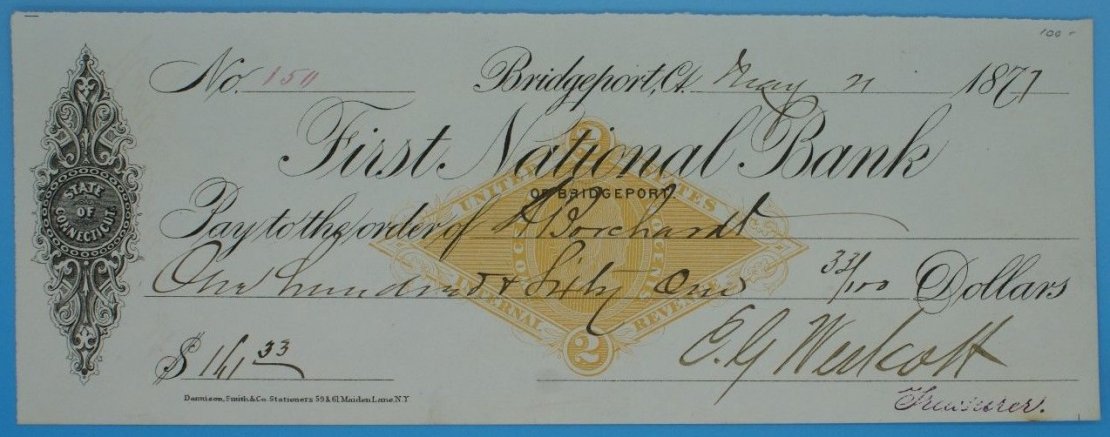 100 -
No. 150 Bridgeport, Ct. May 21 1877
First National Bank
OF BRIDGEPORT.
STATE
OF
CONNECTICUT.
2
UNITED STATES
TWO CENTS
INTERNAL REVENUE
2
Pay to the order of A Borchardt
One hundred & Sixty One 33/100 Dollars
$ 161 33
E. G Westcott
Treasurer.
Dennison, Smith & Co. Stationers 59 & 61 Maiden Lane, N.Y.